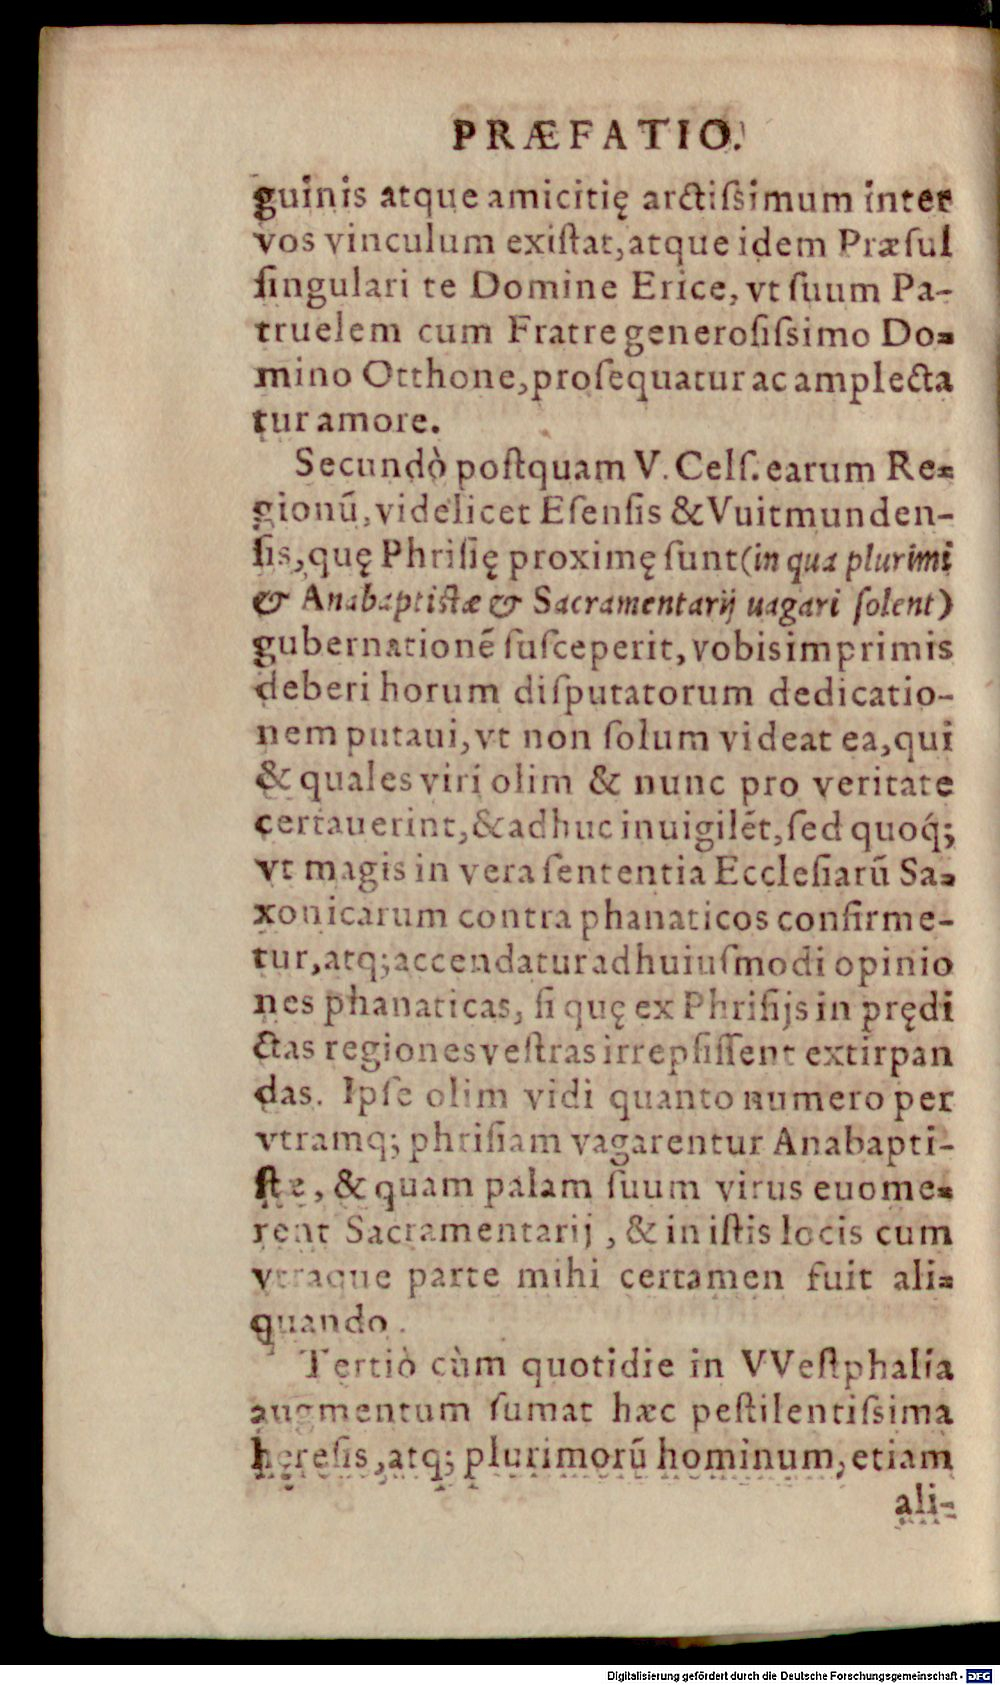 PRÆFATIO.
guinis atque amicitię arctiſsimum inter
vos vinculum exiſtat, atque idem Præſul
ſingulari te Domine Erice, vt ſuum Pa-
truelem cum Fratre generoſiſsimo Do-
mino Otthone, proſequatur ac amplecta
tur amore.
Secundò poſtquam V. Celſ. earum Re-
gionū, videlicet Eſenſis & Vuitmunden-
ſis, quę Phriſię proximę ſunt (in qua plurimi
& Anabaptistæ & Sacramentarij uagari ſolent)
gubernationē ſuſceperit, vobis imprimis
deberi horum diſputatorum dedicatio-
nem putaui, vt non ſolum videat ea, qui
& quales viri olim & nunc pro veritate
certauerint, & adhuc inuigilēt, ſed quoq́;
vt magis in vera ſententia Eccleſiarū Sa-
xonicarum contra phanaticos confirme-
tur, atq; accendatur ad huiuſmodi opinio
nes phanaticas, ſi quę ex Phriſijs in prędi
ctas regiones veſtras irrepſiſſent extirpan
das. Ipſe olim vidi quanto numero per
vtramq; phriſiam vagarentur Anabapti-
ſtæ, & quam palam ſuum virus euome-
rent Sacramentarij, & in iſtis locis cum
vtraque parte mihi certamen fuit ali-
quando.
Tertiò cùm quotidie in VVeſtphalia
augmentum ſumat hæc peſtilentiſsima
hęreſis, atq; plurimorū hominum, etiam
ali-
Digitalisierung gefördert durch die Deutsche Forschungsgemeinschaft - DFG